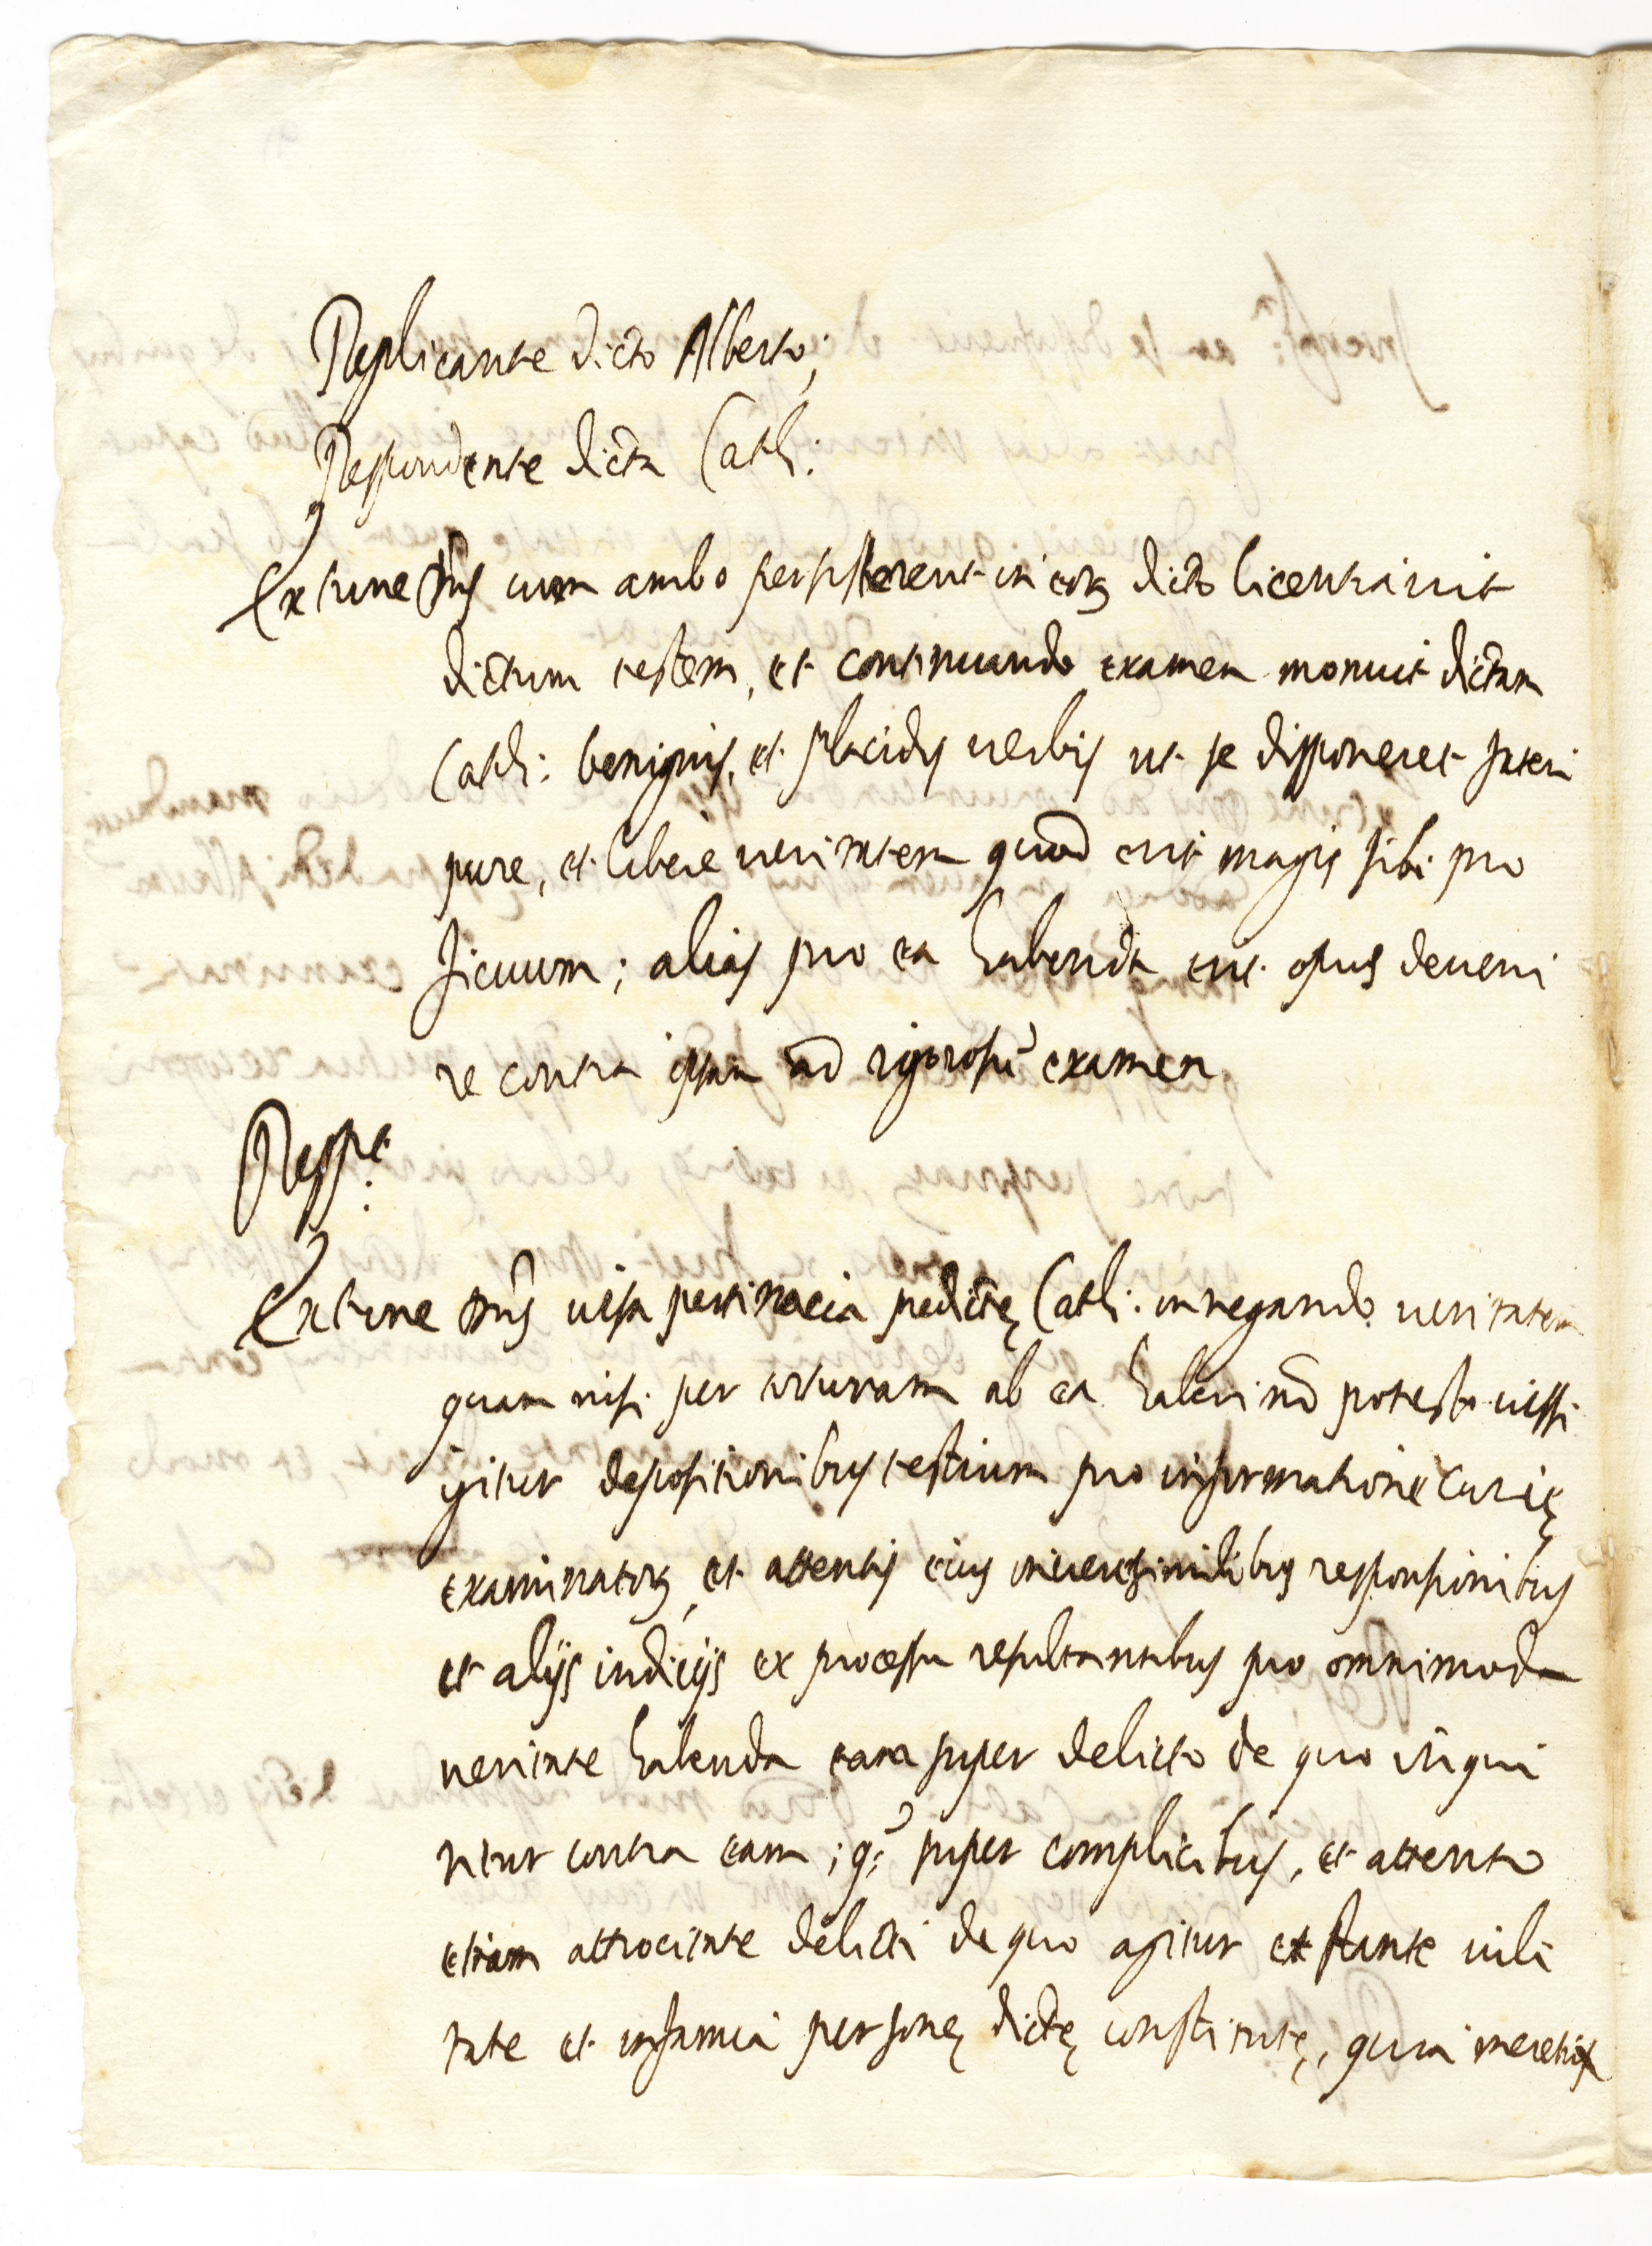 Replicante dicto Alberto;
Respondente dicta Cath:
Ex tunc Dñs cum ambo persisterent in eorꝝ dicto licentiavit
dictum testem, et continuando examen monuit dictam
Cath: benignis, et placidis verbis ut se disponeret fateri
pure, et libere veritatem quod erit magis sibi pro
ficuum; alias pro ea habenda erit opus deveni
re contra ipsam ad rigorosũ examen
Resp.t
Ex tunc Dñs visa pertinacia predictę Cath: in negando veritatem
quam nisi per torturam ab ea haberi nõ potest. visis
igitur depositionibus testium pro informatione Curię
examinatorꝝ, et attentis eius inverisimilibus responsionibus
et alijs indicijs ex processu resultantibus pro omnimoda
veritate habenda tam super delicto de quo inqui
ritur contra eam; q̃ super complicibus, et attento
etiam attrocitate delicti de quo agitur et stante vili
tate et infamia personę dictę constitutę, quia meretrix